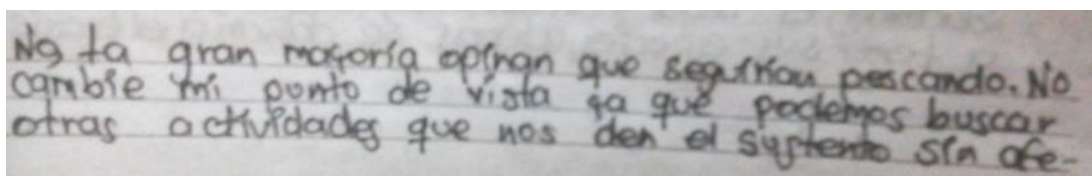 No la gran mayoría opinan que seguirían pescando. No
cambie mi punto de vista ya que podemos buscar
otras actividades que nos den el sustento sin afe-